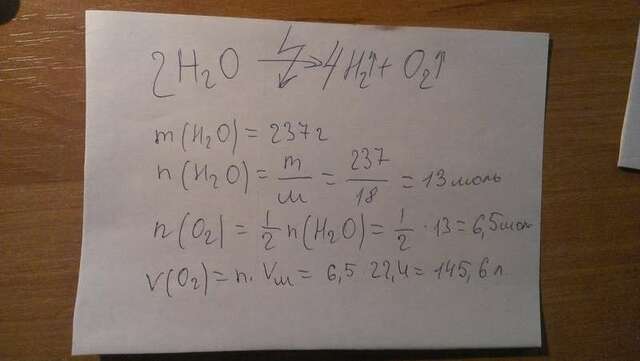 2H₂O ⟶ 4H₂↑ + O₂↑
m(H₂O) = 237г
n(H₂O) = m/M = 237/18 = 13 моль
n(O₂) = 1/2 n(H₂O) = 1/2 · 13 = 6,5 мол
V(O₂) = n · Vм = 6,5 22,4 = 145,6 л